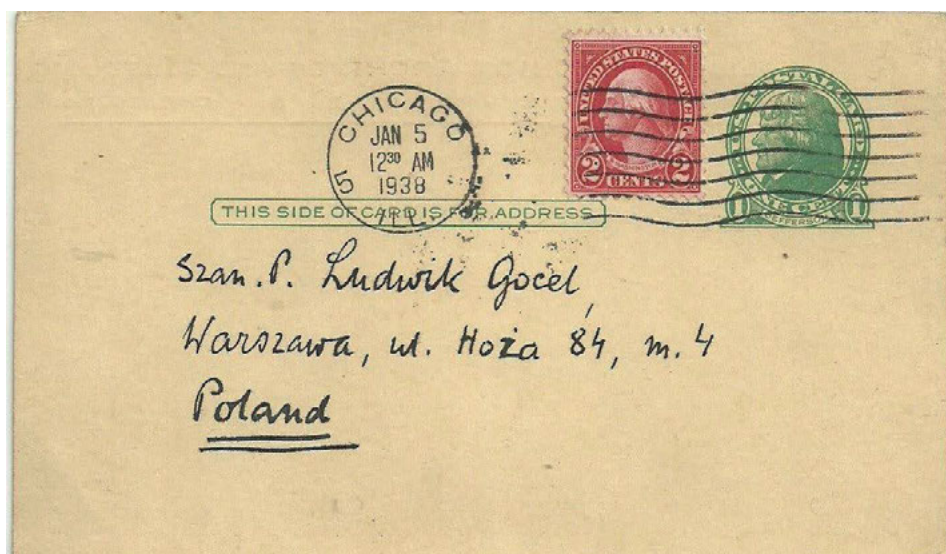 CHICAGO
JAN 5
12 30 AM
1938
5 ILL.
UNITED STATES POSTAGE
2 CENTS 2
THIS SIDE OF CARD IS FOR ADDRESS
1 JEFFERSON 1
Szan. P. Ludwik Gocel,
Warszawa, ul. Hoża 84, m. 4
Poland